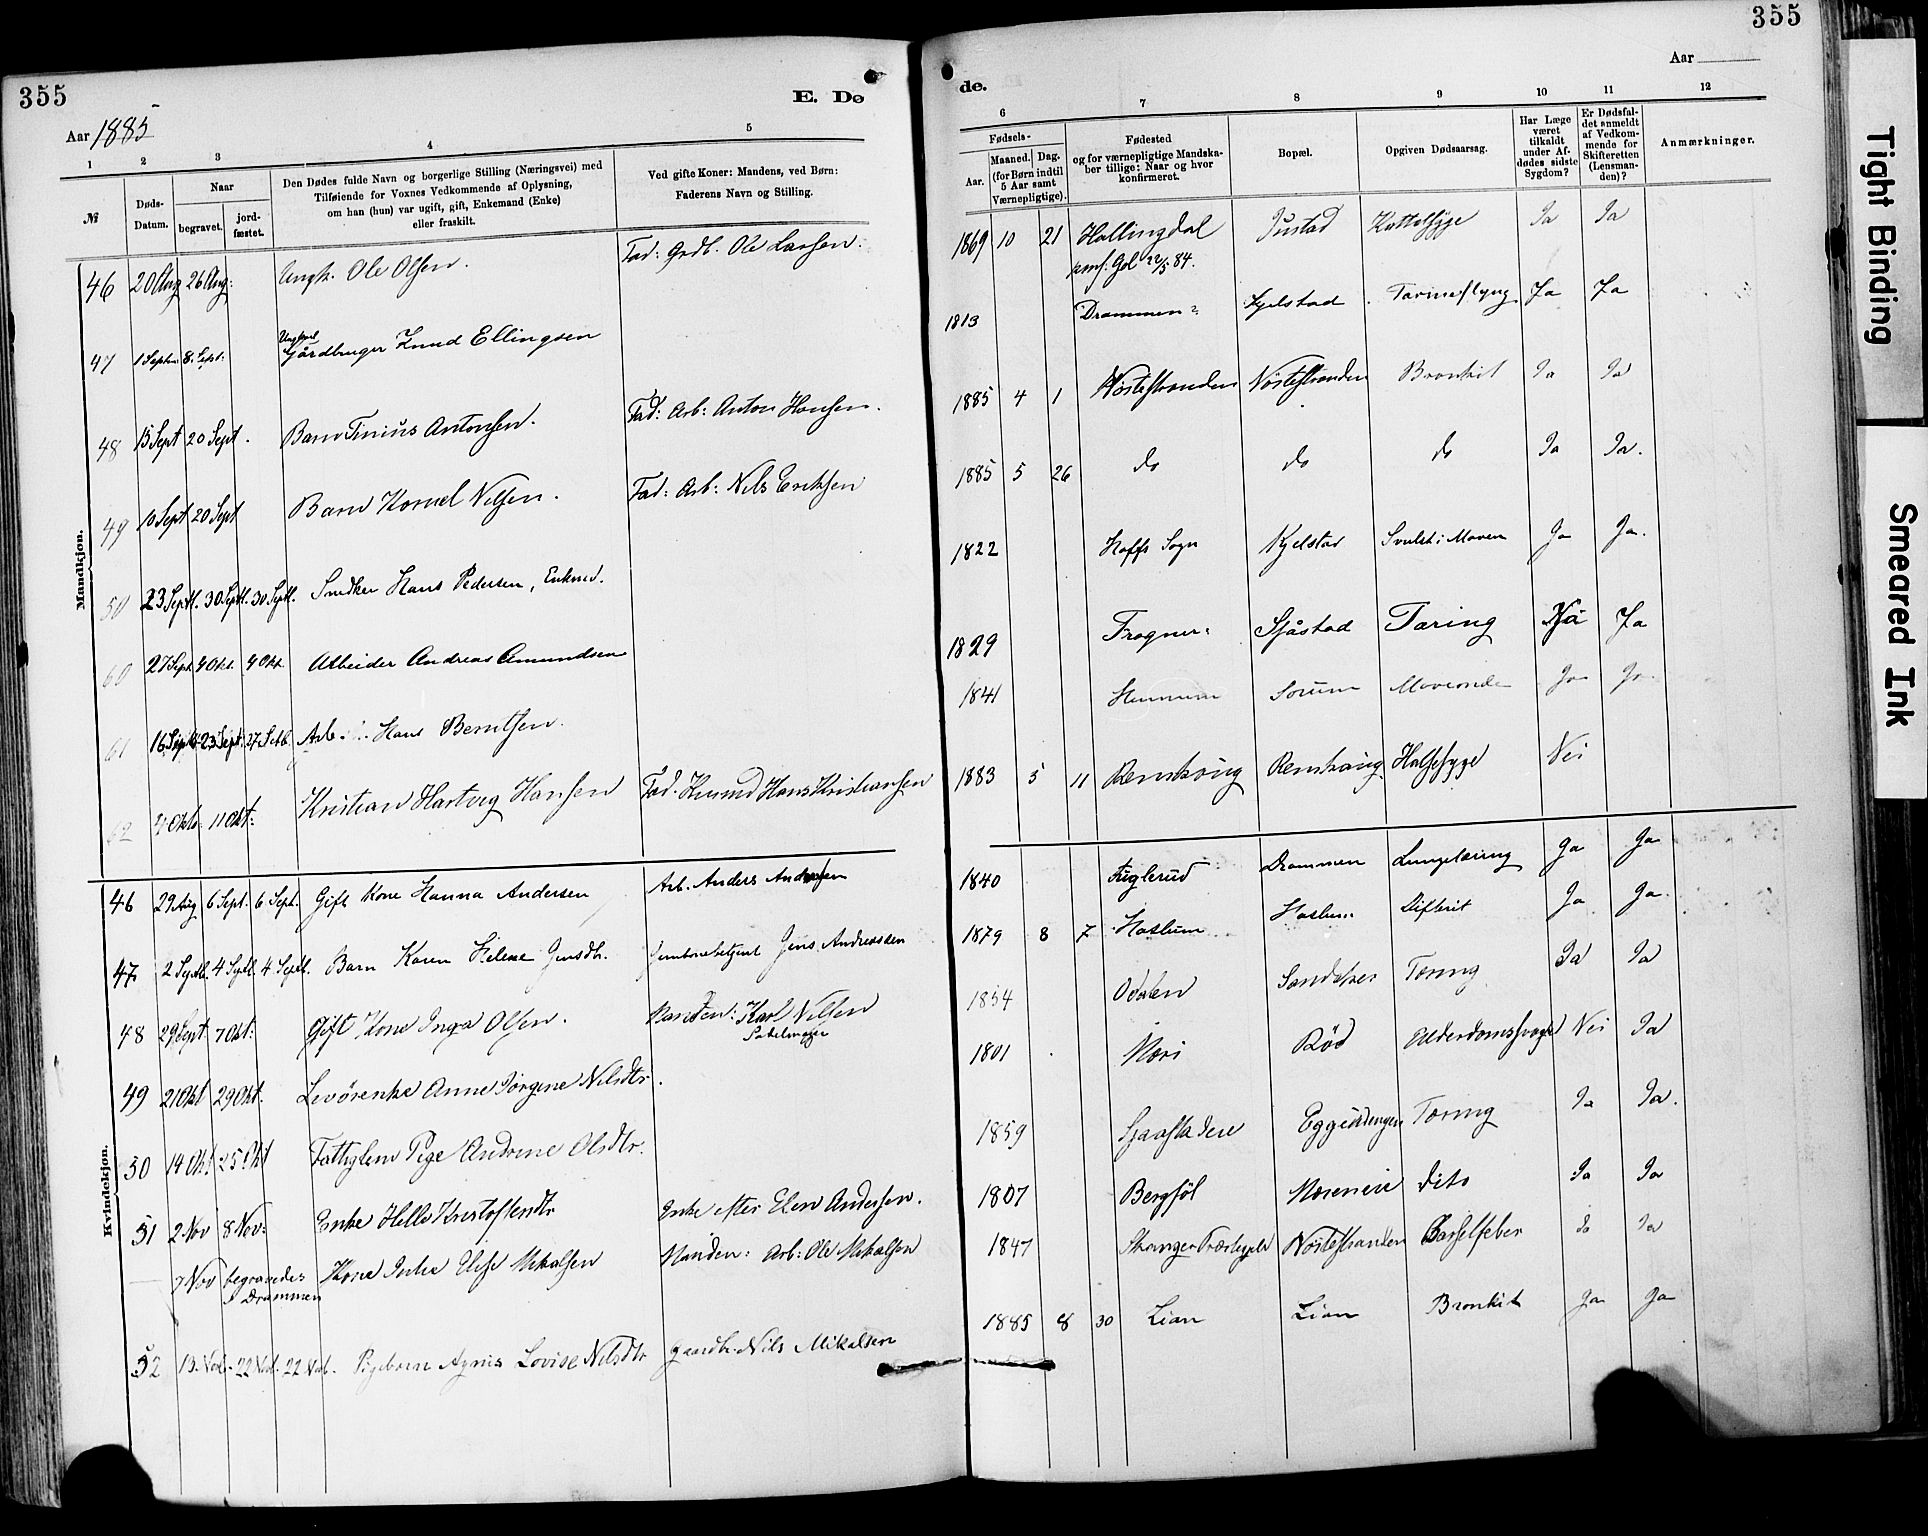 355
E. Dø
Aar 1885
1 2 3 4 5
№
Døds-
Datum.
Naar
begravet.
jord-
fæstet.
Den Dødes fulde Navn og borgerlige Stilling (Næringsvei) med
Tilføiende for Voxnes Vedkommende af Oplysning,
om han (hun) var ugift, gift, Enkemand (Enke)
eller fraskilt.
Ved gifte Koner: Mandens, ved Børn:
Faderens Navn og Stilling.
Mandkjøn.
46 20 Aug 26 Aug: Ungk. Ole Olsen. Fad: Grdb. Ole Larsen.
Ungkarl
47 1 Septm. 8. Sept: Gårdbruger Knud Ellingsen
48 15 Sept 20 Sept. Barn Tinius Antonsen. Fad: Arb: Anton Hansen.
49 10 Sept 20 Sept Barn Kornel Nilsen. Fad: Arb: Nils Eriksen
50 23 Septl. 30 Septl. 30 Septl. Snedker Hans Pedersen, Enkmd.
60 27 Sept 4 Okt. 4 Okt. Arbeider Andreas Amundsen
61 16 Sept 23 Sept. 27 Setb. Arb. Hans Berntsen.
62 4 Okto: 11 Okt: Kristian Hartvig Hansen Fad. Husmd Hans Kristiansen
Kvindekjøn.
46 29 Aug 6 Sept. 6 Sept. Gift Kone Hanna Andersen Arb. Anders Andersen
47. 2 Septb. 4 Septb. 4 Septb. Barn Karen Helene Jensdtr. Jens Andreassen
48 29 Sept 7 Okt: Gift Kone Inga Olsen. Manden: Karl Nilsen
Sadelmager
49 21 Okt 29 Okt. Anne Jørgine Nilsdtr.
50 14 Okt 25 Okt Fattiglem Pige Andrine Olsdtr.
51 2 Nov 8 Nov: Enke Helle Kristofsendtr Enke efter Elen Andersen.
— 7 Nov begravedes Kone Mikalsen Manden: Arb: Ole Mikalsen
i Drammen
52 13. Nov. 22 Nov. 22 Nov. Pigebarn Agnes Lovise Nilsdtr Gaardbr. Nils Mikalsen
355
Aar
de.
6 7 8 9 10 11 12
Fødsels-
Aar.
Maaned. Dag.
(for Børn indtil
5 Aar samt
Værnepligtige).
Fødested
og for værnepligtige Mandska-
ber tillige: Naar og hvor
konfirmeret.
Bopæl.
Opgiven Dødsaarsag.
Har Læge
været
tilkaldt
under Af-
dødes sidste
Sygdom?
Er Dødsfal-
det anmeldt
af Vedkom-
mende for
Skifteretten
(Lensman-
den)?
Anmærkninger.
1869 10 21 Hallingdal Ja Ja
konf. Gol 22/5 84.
1813 Drammen Kjelstad Ja Ja
1885 4 1 Nøstestranden Nøstestranden Bronkit Ja Ja
1885 5 26 do do do Ja Ja.
1822 Hoffs Sogn Kjelstad Svulst i Maven Ja Ja.
1829 Frogner Sjåstad Tæring Ja Ja
1841 Hennum Sørum Maveonde Ja Ja.
1883 5 11 Renskaug Renskaug Halsesyge Nei
1840 Fuglerud Drammen Lungetæring Ja Ja
1879 8 7 Haslum Haslum Difterit Ja Ja.
1854 Odalen Sandaker Tæring Ja Ja
1801 Mæri Rød Alderdomssvaghed Nei Ja
1859 Eggeidengen Tæring Ja Ja.
1807 Bergsøl Dito Ja Ja
1847 Stranger Præstegjeld Nøstestranden Barselfeber do Ja
1885 8 30 Lian Lian Bronkit Ja Ja
Tight Binding
Smeared Ink